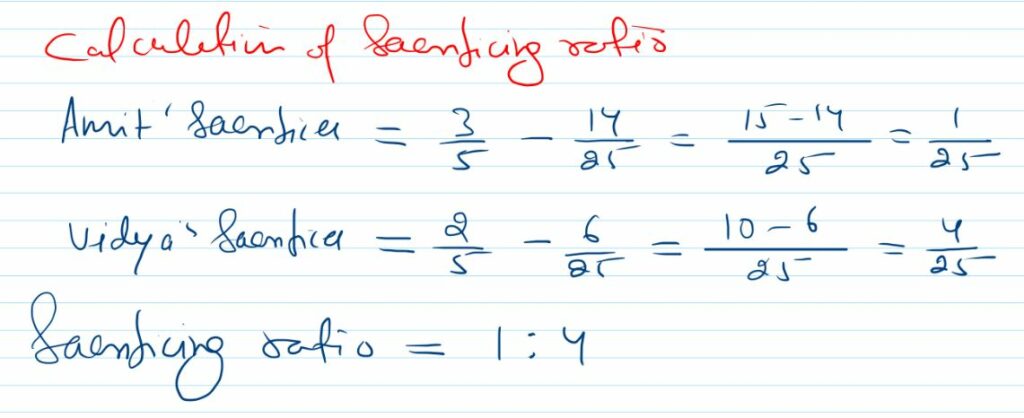 Calculation of Sacrificing ratio
Amrit' Sacrifice = 3/5 - 14/25 = 15-14/25 = 1/25
Vidya's Sacrifice = 2/5 - 6/25 = 10-6/25 = 4/25
Sacrificing ratio = 1:4